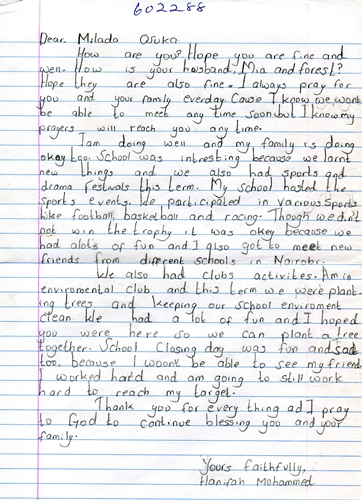 602288
Dear Milada Osuka
How are you? Hope you are fine and
well. How is your husband, Mia and forest?
Hope they are also fine. I always pray for
you and your family everday Cause I know we wont
be able to meet any time soon but I know my
prayers will reach you any time.
I am doing well and my family is doing
okay too. School was intresting because we larnt
new things and we also had sports and
drama festivals this term. My school hosted the
sports events. We participated in various sports
like football, basketball and racing. Though we did't
not win the trophy it was okey because we
had alots of fun and I also got to meet new
friends from different schools in Nairobi.
We also had clubs activites. Am in
enviromental club and this term we were plant-
ing trees and keeping our school enviroment
clean We had a lot of fun and I hoped
you were here so we can plant a tree
together. School Closing day was fun and sad
too, because I woont be able to see my friend
I worked hard and am going to still work
hard to reach my target.
Thank you for every thing ad I pray
to God to continue blessing you and your
family.
Yours faithfully,
Hanifah Mohammed